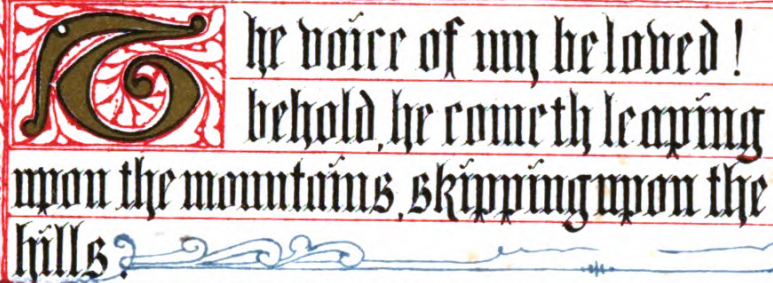 The voice of my beloved!
behold, he cometh leaping
upon the mountains, skipping upon the
hills.